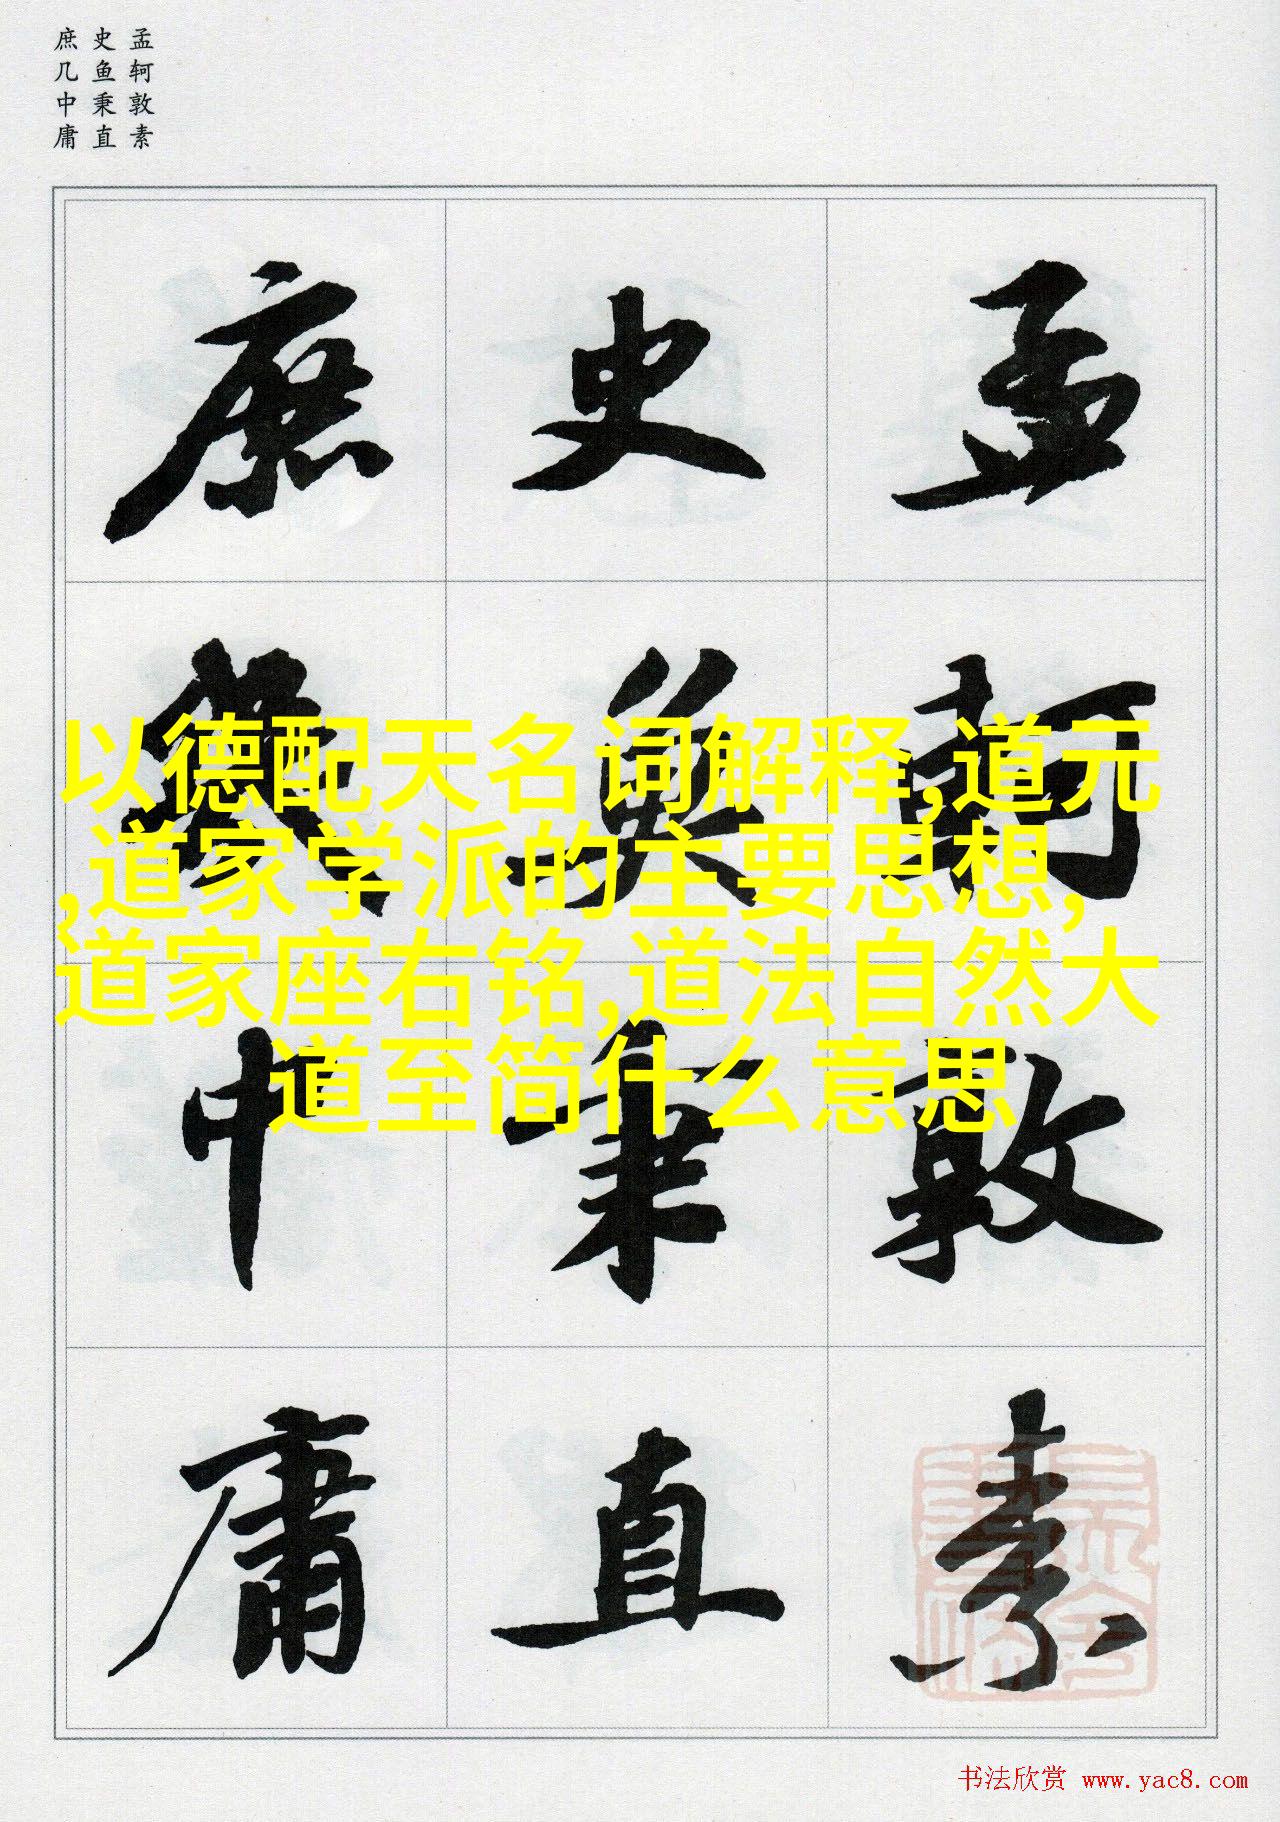 孟轲敦素
史鱼秉直
庶几中庸
孟軻敦素
史魚秉直
庶幾中庸
以德配天名词解释,道元
,道家学派的主要思想,
道家座右铭,道法自然大
道至简什么意思
书法欣赏 www.yac8.com